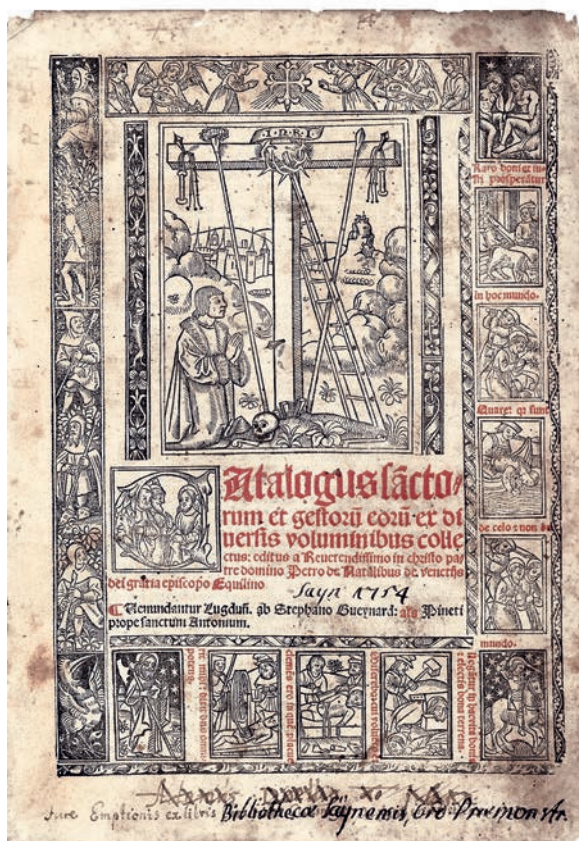 ·I·N·R·I·
Raro boni et iu-
sti prosperātur
in hoc mundo.
Quare: qz sunt
de celo z non de
mundo.
Catalogus sācto/
rum et gestorū eorū ex di
uersis voluminibus colle
ctus: editus a Reuerendissimo in christo pa
tre domino Petro de Natalibus de venetijs
dei gratia episcopo Equilino
Sayn 1754
¶ Uenundantur Lugduñ. ab Stephano Gueynard: als Pineti
prope sanctum Antonium.
Jure Emptionis ex libris Bibliothecæ Saynensis, Ord. Præmonstr.